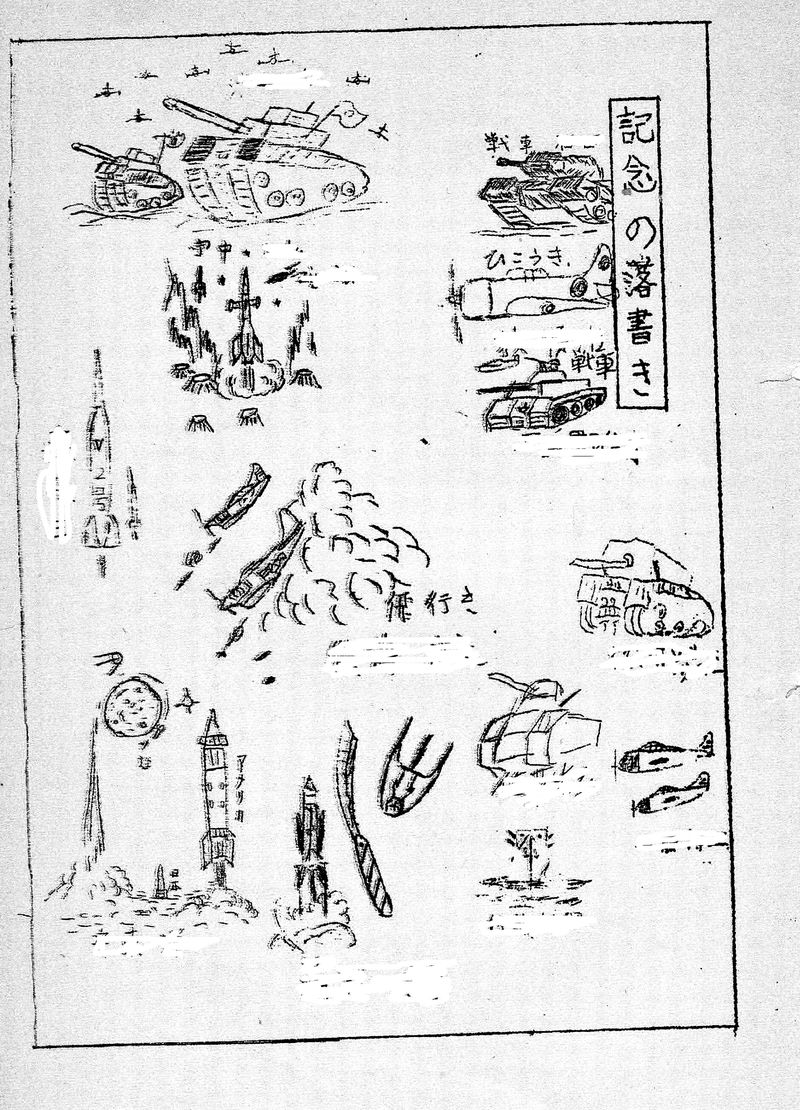 記念の落書き
戦車
ひこうき.
戦車
V2号
行き
アメリカ
日本